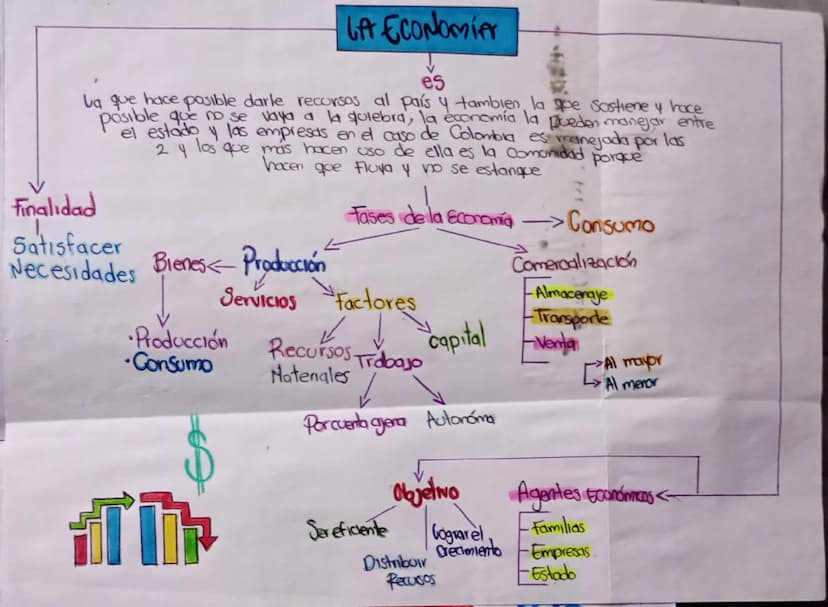 LA ECONOMÍA
es
La que hace posible darle recursos al país y tambien la que sostiene y hace
posible que no se vaya a la quiebra, la economía la pueden manejar entre
el estado y las empresas en el caso de Colombia es manejada por las
2 y los que más hacen uso de ella es la comunidad porque
hacen que fluya y no se estanque
Finalidad
Satisfacer
Necesidades
Fases de la Economía
Consumo
Bienes
Producción
Comercialización
Servicios
Factores
Almacenaje
Transporte
Venta
Al mayor
Al menor
Producción
Consumo
Recursos
Materiales
Trabajo
capital
Por cuenta ajena
Autonóma
$
Objetivo
Ser eficiente
Distribuir
Recursos
Lograr el
Crecimiento
Agentes Económicos
Familias
Empresas
Estado